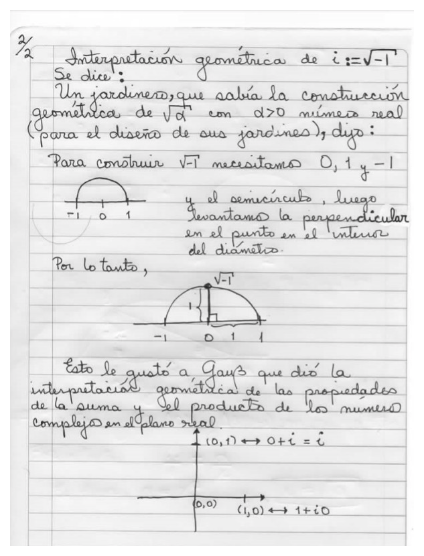 2/2
Interpretación geométrica de i := √-1
Se dice:
Un jardinero, que sabía la construcción
geométrica de √α con α>0 número real
(para el diseño de sus jardines), dijo:
Para construir √-1 necesitamos 0, 1 y -1
-1 0 1
y el semicírculo, luego
levantamos la perpendicular
en el punto en el interior
del diámetro.
Por lo tanto,
√-1
1
-1 0 1 1
Esto le gustó a Gauß que dió la
interpretación geométrica de las propiedades
de la suma y el producto de los números
complejos en el plano real.
(0,1) ↔ 0+i = i
(0,0)
(1,0) ↔ 1+i0